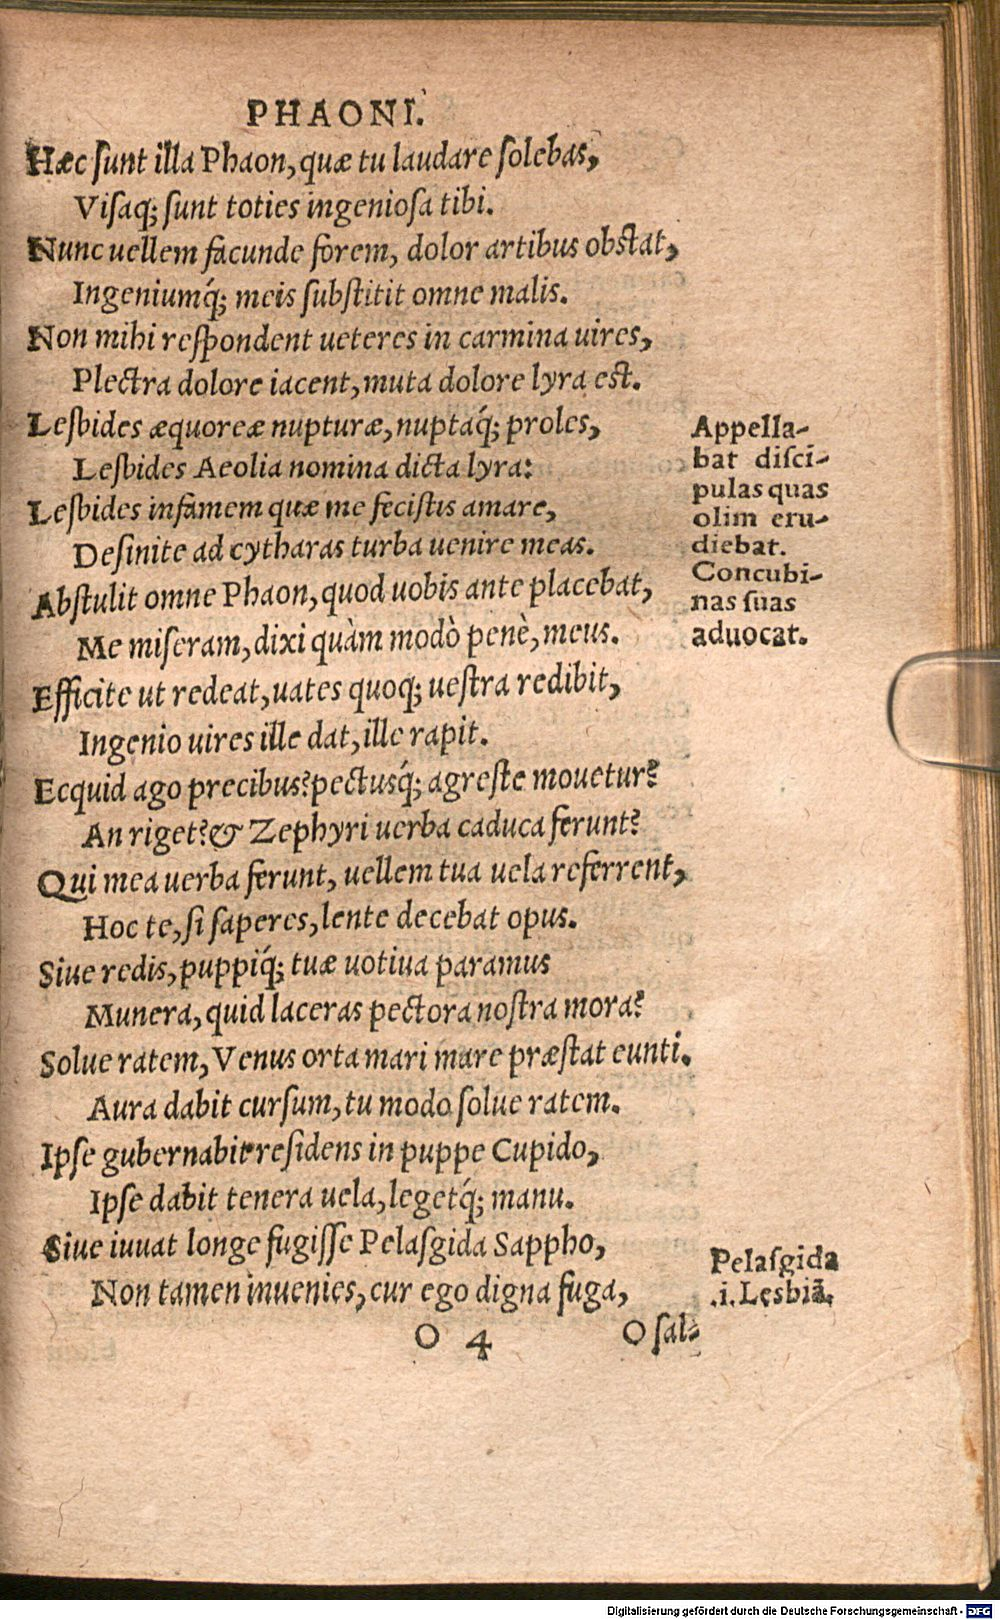 PHAONI.
Hæc ſunt illa Phaon, quæ tu laudare ſolebas,
Viſaq; ſunt toties ingenioſa tibi.
Nunc uellem facunde forem, dolor artibus obſtat,
Ingeniumq́; meis ſubſtitit omne malis.
Non mihi reſpondent ueteres in carmina uires,
Plectra dolore iacent, muta dolore lyra eſt.
Leſbides æquoreæ nupturæ, nuptaq́; proles,
Leſbides Aeolia nomina dicta lyra:
Leſbides infamem quæ me feciſtis amare,
Deſinite ad cytharas turba uenire meas.
Abſtulit omne Phaon, quod uobis ante placebat,
Me miſeram, dixi quàm modò penè, meus.
Efficite ut redeat, uates quoq; ueſtra redibit,
Ingenio uires ille dat, ille rapit.
Ecquid ago precibus? pectusq́; agreſte mouetur?
An riget? & Zephyri uerba caduca ferunt?
Qui mea uerba ferunt, uellem tua uela referrent,
Hoc te, ſi ſaperes, lente decebat opus.
Siue redis, puppiq́; tuæ uotiua paramus
Munera, quid laceras pectora noſtra mora?
Solue ratem, Venus orta mari mare præſtat eunti.
Aura dabit curſum, tu modo ſolue ratem.
Ipſe gubernabit reſidens in puppe Cupido,
Ipſe dabit tenera uela, legetq́; manu.
Siue iuuat longe fugiſſe Pelaſgida Sappho,
Non tamen inuenies, cur ego digna fuga,
O 4 O ſal-
Appella-
bat diſci-
pulas quas
olim eru-
diebat.
Concubi-
nas ſuas
aduocat.
Pelaſgida
.i. Lesbiā.
Digitalisierung gefördert durch die Deutsche Forschungsgemeinschaft - DFG